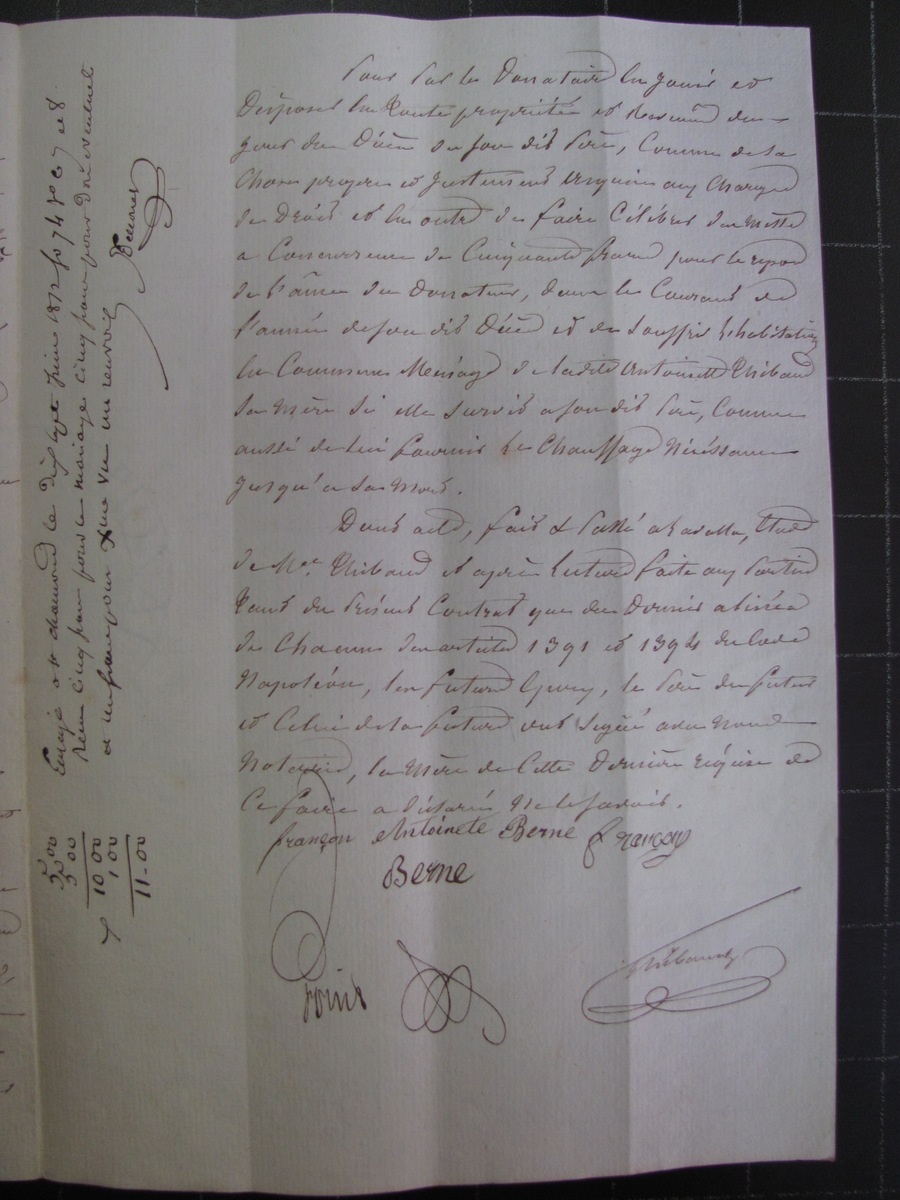 Pour par le Donataire en jouir et
Disposer en toute propriété et revenu du
jour du Décès de son dit Père, Comme de sa
Chose propre et justement acquise aux Charges
de Droit et en outre de faire Célébrer des Messes
a Concurrence de Cinquante francs pour le repos
de l'âme du Donateur, dans le Courant de
l'année de son dit Décès et de souffrir l'habitation
en Commun Ménage de ladite Antoinette Thibaud
sa Mère si elle survit a son dit Père, Comme
aussi de lui fournir le Chauffage Nécéssaire
jusqu'a sa mort.
Dont acte, fait & Passé a Lavalla, Etude
de Me Thibaud et après Lecture faite aux Parties
tant du Présent Contrat que du Dernier alinéa
de Chacun des articles 1391 et 1394 du Code
Napoléon, les futurs Epoux, le Père du futur
et Celui de la future ont signé avec nous
Notaires, la Mère de Cette Dernière requise de
Ce faire a Déclaré Ne le Savoir.
françon Antoinete Berne françon
Berne
Thibaud
Enregé a St chamond le Dix sept juin 1812 fo 74 Ro C 7 et 8
Reçu cinq francs pour le mariage cinq francs pour Don éventuel
et un franc pour Xme vu un renvoi
5.00
5.00
10.00
1.00
11.00